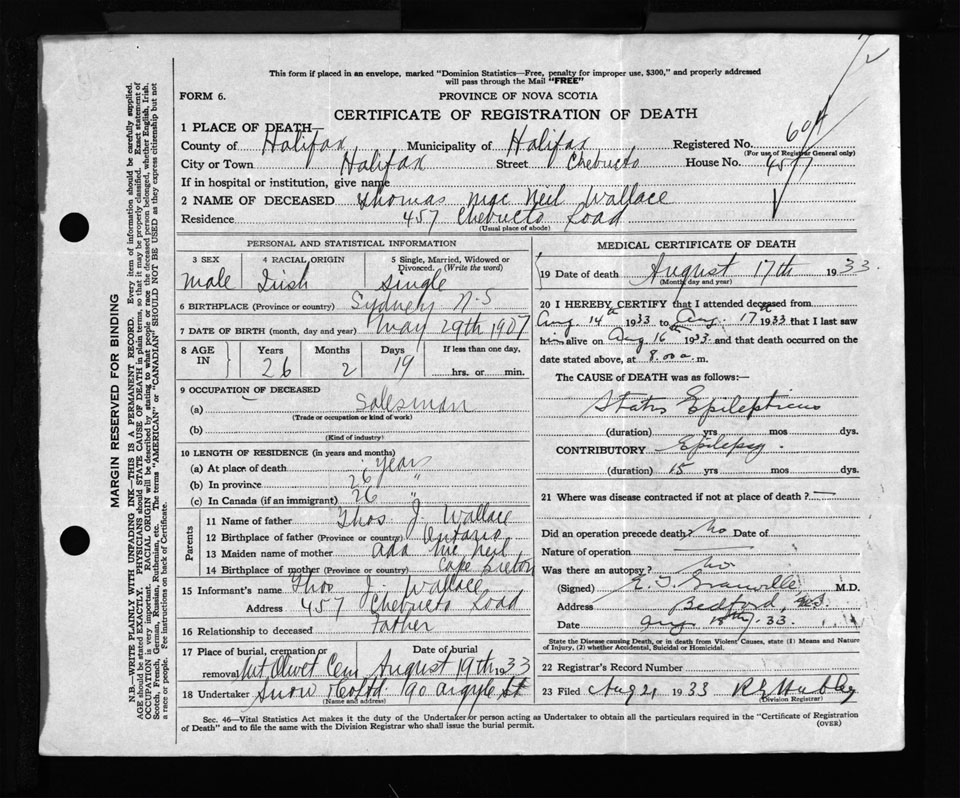 This form if placed in an envelope, marked "Dominion Statistics—Free, penalty for improper use, $300," and properly addressed
will pass through the Mail "FREE"
FORM 6.
PROVINCE OF NOVA SCOTIA
CERTIFICATE OF REGISTRATION OF DEATH
1 PLACE OF DEATH—
County of Halifax Municipality of Halifax Registered No.
(For use of Registrar General only)
City or Town Halifax Street Chebucto House No. 457
If in hospital or institution, give name
2 NAME OF DECEASED Thomas Mac Neil Wallace
Residence 457 Chebucto Road
(Usual place of abode)
PERSONAL AND STATISTICAL INFORMATION
3 SEX 4 RACIAL ORIGIN 5 Single, Married, Widowed or
Divorced. (Write the word)
male Irish single
6 BIRTHPLACE (Province or country) Sydney N.S
7 DATE OF BIRTH (month, day and year) May 29th 1907
8 AGE IN Years Months Days If less than one day,
26 2 19 hrs. or min.
9 OCCUPATION OF DECEASED
(a) Salesman
(Trade or occupation or kind of work)
(b)
(Kind of industry)
10 LENGTH OF RESIDENCE (in years and months)
(a) At place of death years
(b) In province 26 "
(c) In Canada (if an immigrant) 26 "
Parents
11 Name of father Thos J. Wallace
12 Birthplace of father (Province or country) Ontario
13 Maiden name of mother Ada Mc Neil
14 Birthplace of mother (Province or Country) Cape Breton
15 Informant's name Thos J. Wallace
Address 457 Chebucto Road
16 Relationship to deceased Father
17 Place of burial, cremation or Date of burial
removal Mt Olivet Cem August 19th 1933
18 Undertaker Snow & Co Ltd 190 Argyle St
(Name and address)
MEDICAL CERTIFICATE OF DEATH
19 Date of death August 17th 1933.
(Month, day and year)
20 I HEREBY CERTIFY that I attended deceased from
Aug. 14th 1933 to Aug. 17th 1933 that I last saw
him alive on Aug 16th 1933 and that death occurred on the
date stated above, at 8.00 a. m.
The CAUSE OF DEATH was as follows:—
Status Epilepticus
(duration) yrs mos dys.
CONTRIBUTORY Epilepsy.
(duration) 15 yrs mos dys.
21 Where was disease contracted if not at place of death ? —
Did an operation precede death? no Date of
Nature of operation —
Was there an autopsy? no
(Signed) E. J. Granville M.D.
Address Bedford, N.S.
Date Aug. 18th. 33.
State the Disease causing Death, or in death from Violent Causes, state (1) Means and Nature
of Injury, (2) whether Accidental, Suicidal or Homicidal.
22 Registrar's Record Number
23 Filed Aug 21 1933
(Division Registrar)
Sec. 46—Vital Statistics Act makes it the duty of the Undertaker or person acting as Undertaker to obtain all the particulars required in the "Certificate of Registration
of Death" and to file the same with the Division Registrar who shall issue the burial permit.
(OVER)
MARGIN RESERVED FOR BINDING
N.B.—WRITE PLAINLY WITH UNFADING INK—THIS IS A PERMANENT RECORD. Every item of information should be carefully supplied.
AGE should be stated EXACTLY. PHYSICIANS should STATE CAUSE OF DEATH in plain terms, so that it may be properly classified. Exact statement of
OCCUPATION is very important. RACIAL ORIGIN will be described by stating to what people or race the deceased person belonged, whether English, Irish,
Scotch, French, German, Russian, Ruthenian, etc. The terms "AMERICAN" or "CANADIAN" SHOULD NOT BE USED as they express citizenship but not
a race or people. Fee instructions on back of Certificate.